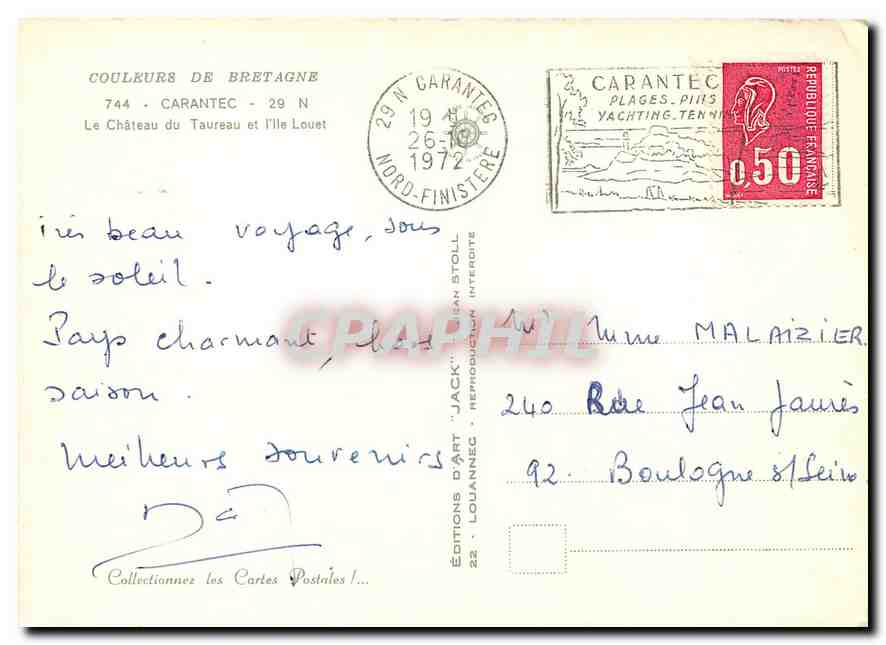 COULEURS DE BRETAGNE
744 - CARANTEC - 29 N
Le Château du Taureau et l'Ile Louet
29 N CARANTEC
19 H
26-10
1972
NORD-FINISTERE
CARANTEC
PLAGES.PINS
YACHTING.TENNIS
POSTES
REPUBLIQUE FRANÇAISE
0,50
Très beau voyage, sous
le soleil.
Pays charmant, hors
saison.
Meilleurs souvenirs
Collectionnez les Cartes Postales !...
ÉDITIONS D'ART "JACK" JEAN STOLL
22 - LOUANNEC - REPRODUCTION INTERDITE
CPAPHIL
Mr Mme MALAIZIER
240 Rue Jean Jaurès
92. Boulogne s/Seine